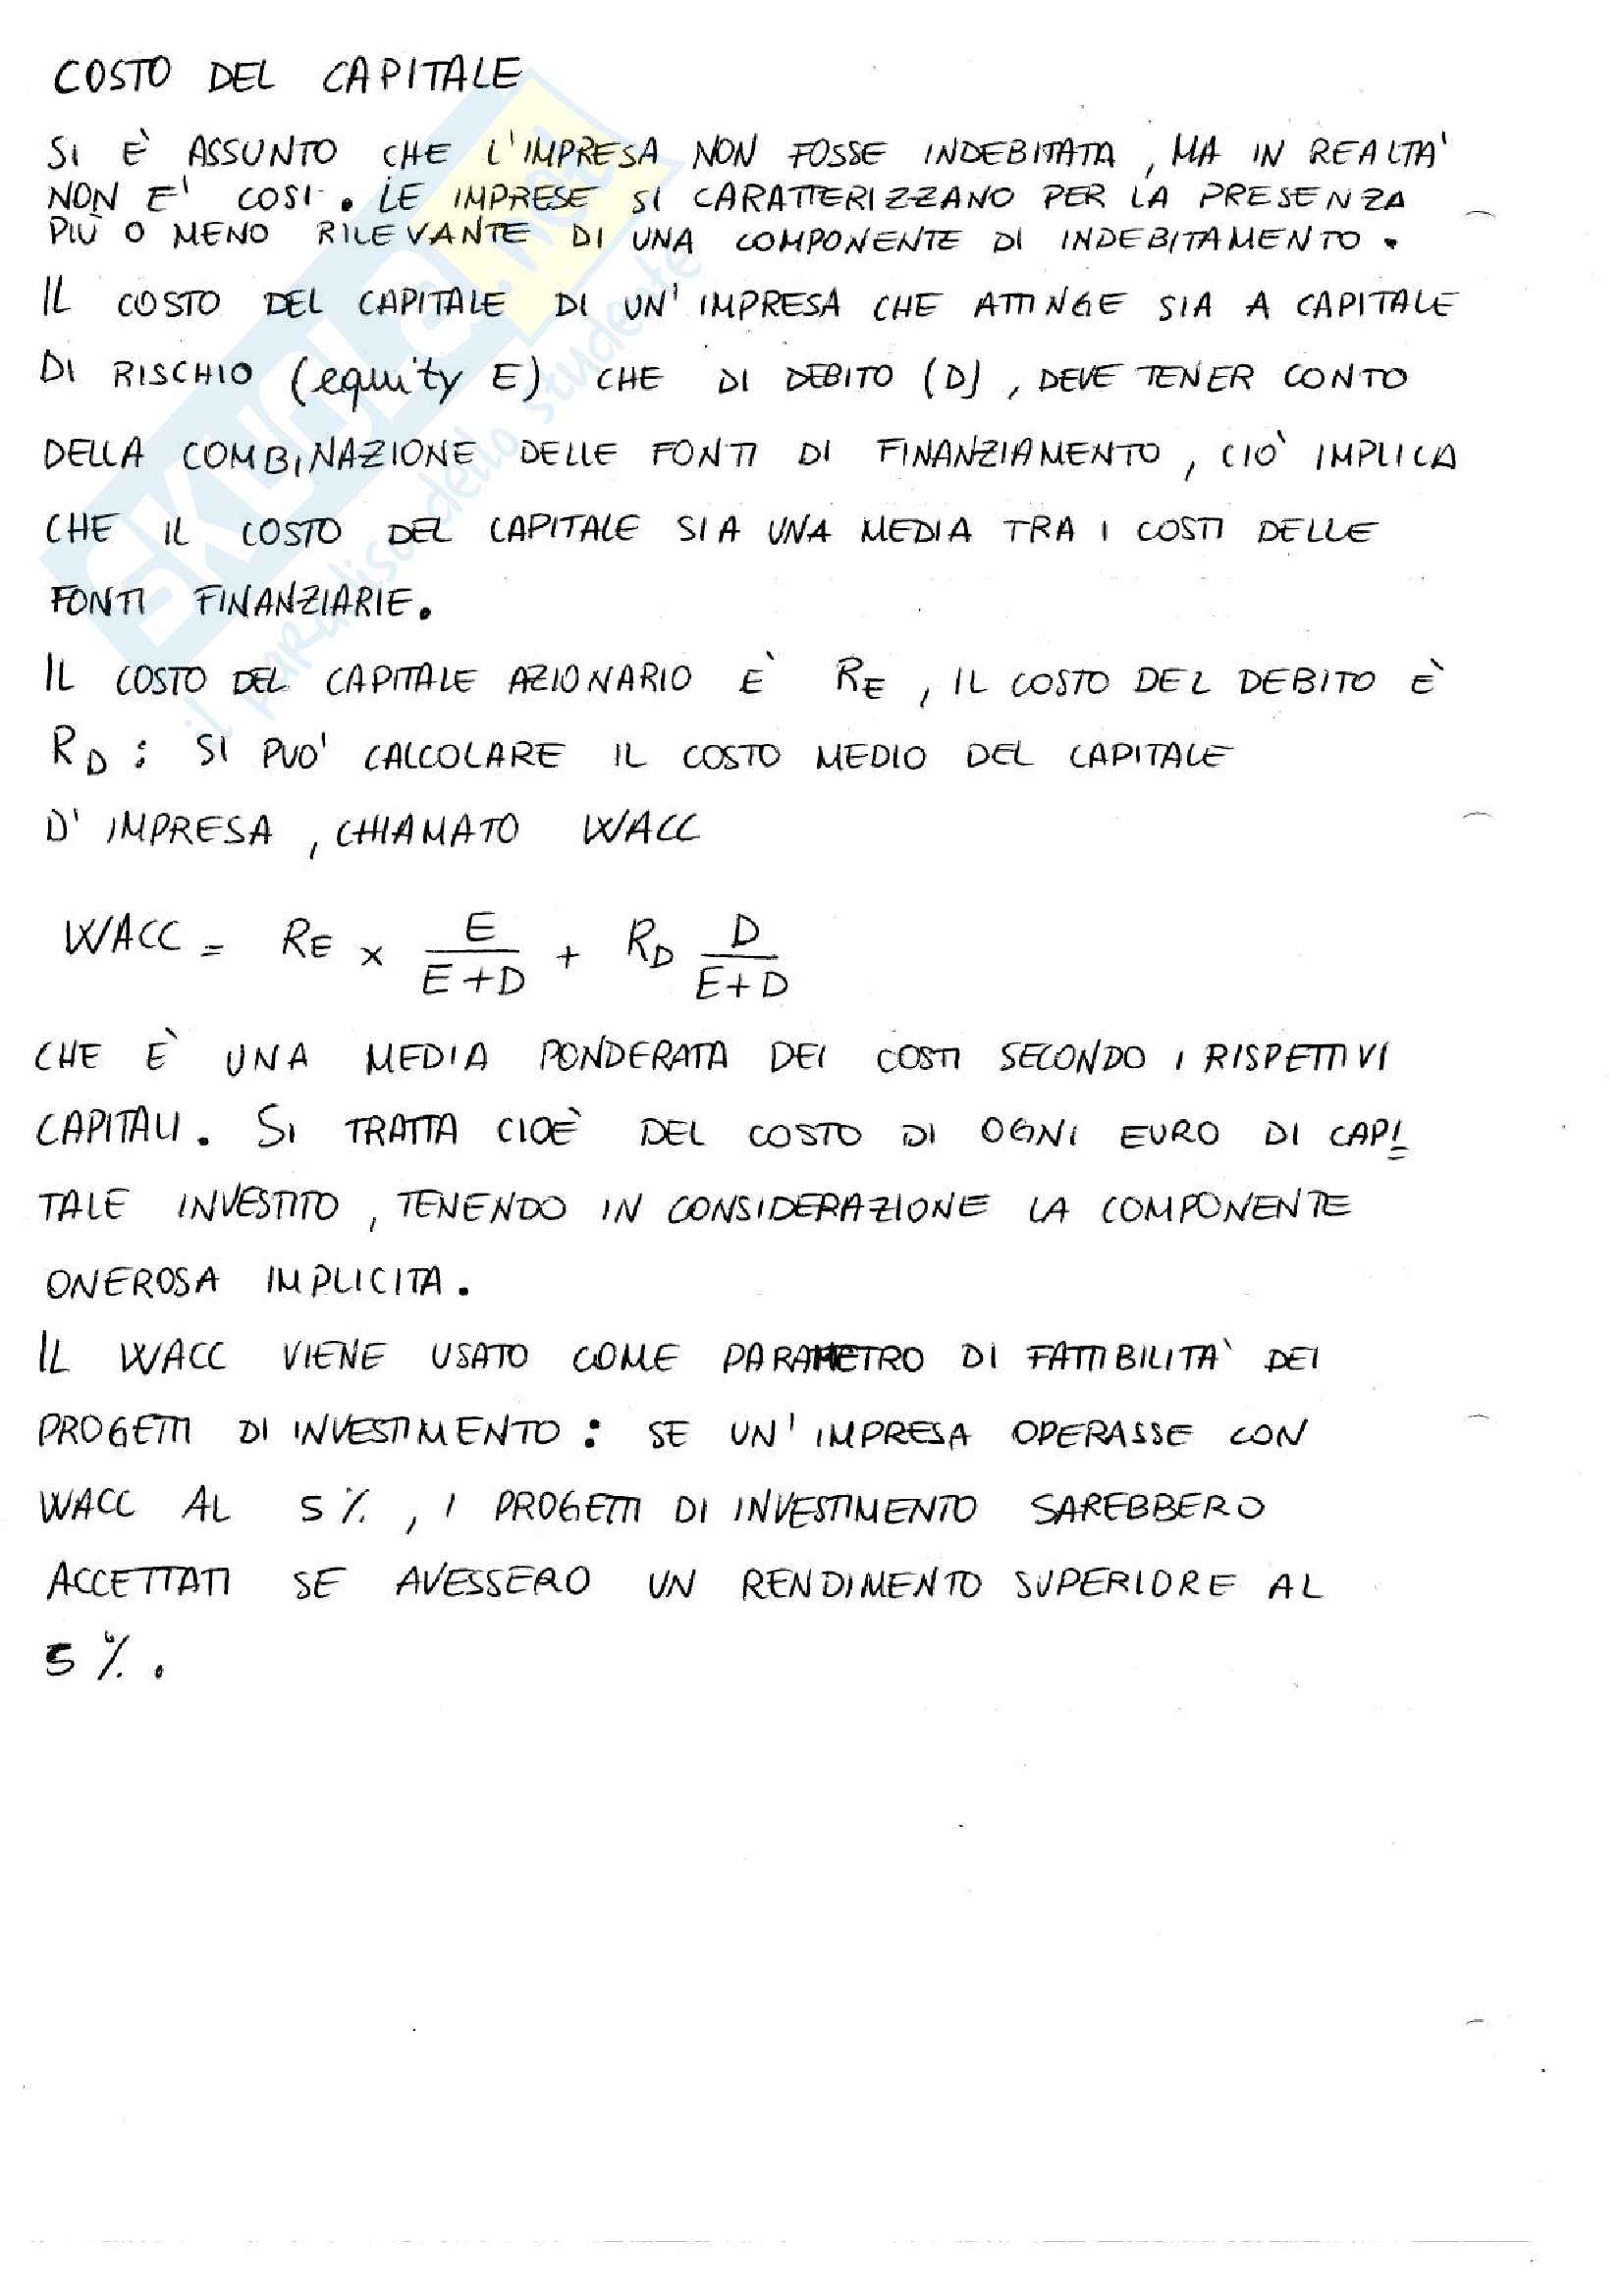 COSTO DEL CAPITALE
SI È ASSUNTO CHE L'IMPRESA NON FOSSE INDEBITATA, MA IN REALTA'
NON E' COSI. LE IMPRESE SI CARATTERIZZANO PER LA PRESENZA
PIÙ O MENO RILEVANTE DI UNA COMPONENTE DI INDEBITAMENTO.
IL COSTO DEL CAPITALE DI UN'IMPRESA CHE ATTINGE SIA A CAPITALE
DI RISCHIO (equity E) CHE DI DEBITO (D), DEVE TENER CONTO
DELLA COMBINAZIONE DELLE FONTI DI FINANZIAMENTO, CIO' IMPLICA
CHE IL COSTO DEL CAPITALE SIA UNA MEDIA TRA I COSTI DELLE
FONTI FINANZIARIE.
IL COSTO DEL CAPITALE AZIONARIO È RE, IL COSTO DEL DEBITO È
RD: SI PUO' CALCOLARE IL COSTO MEDIO DEL CAPITALE
D'IMPRESA, CHIAMATO WACC
WACC = RE × E/(E+D) + RD D/(E+D)
CHE È UNA MEDIA PONDERATA DEI COSTI SECONDO I RISPETTIVI
CAPITALI. SI TRATTA CIOÈ DEL COSTO DI OGNI EURO DI CAPI=
TALE INVESTITO, TENENDO IN CONSIDERAZIONE LA COMPONENTE
ONEROSA IMPLICITA.
IL WACC VIENE USATO COME PARAMETRO DI FATTIBILITA' DEI
PROGETTI DI INVESTIMENTO: SE UN'IMPRESA OPERASSE CON
WACC AL 5%, I PROGETTI DI INVESTIMENTO SAREBBERO
ACCETTATI SE AVESSERO UN RENDIMENTO SUPERIORE AL
5%.
SKUOLA.net
il paradiso dello studente